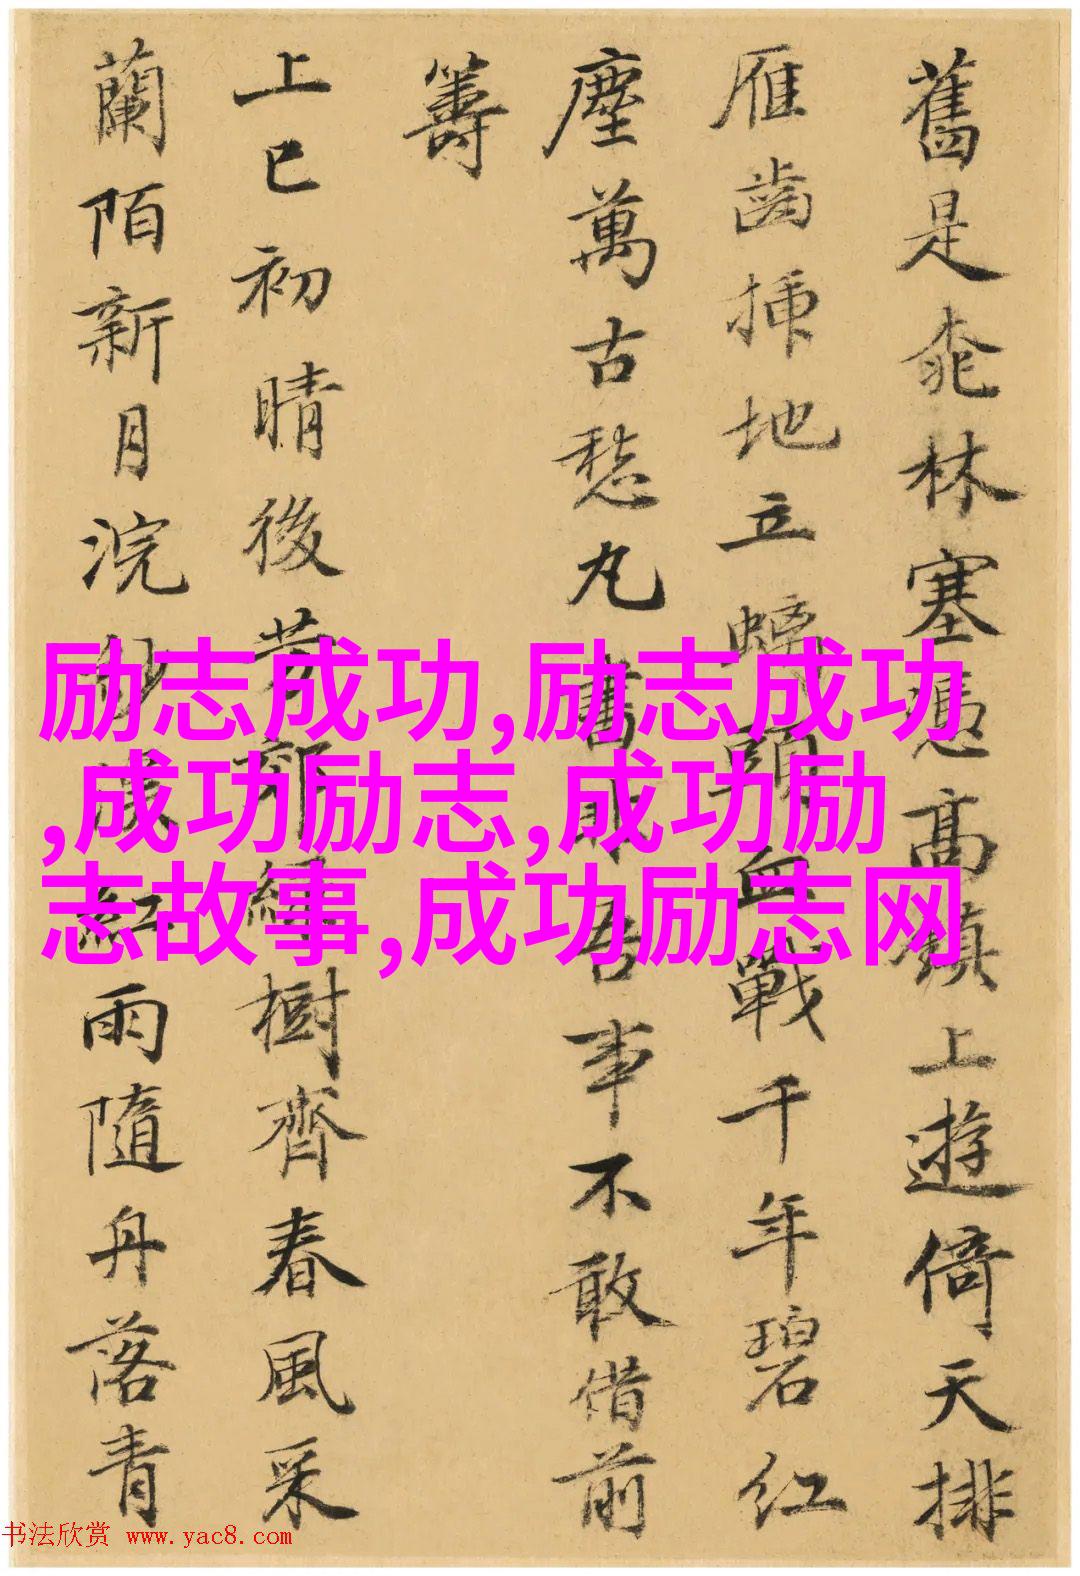 舊是桃林塞憑高鎮上遊倚天排
雁齒揷地立螭頭血戰千年碧紅
塵萬古愁丸書成吾事不敢借前
籌
上巳初晴後芳郊綠樹齊春風采
蘭陌新月浣紗溪紅雨隨舟落青
励志成功,励志成功
,成功励志,成功励
志故事,成功励志网
书法欣赏 www.yac8.com